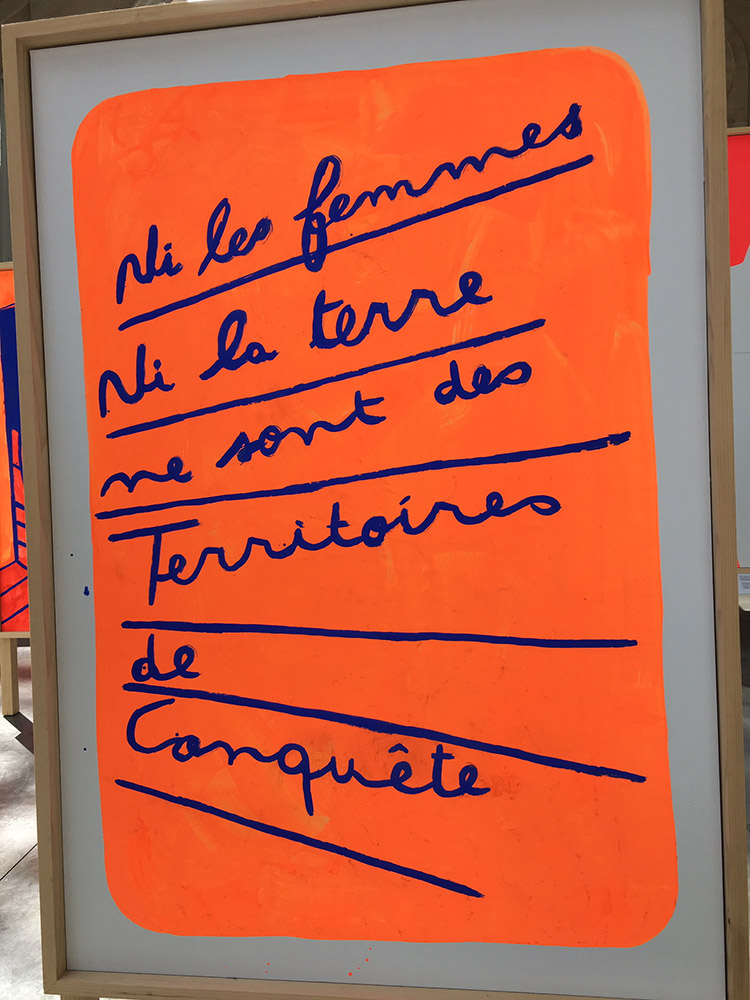 Ni les femmes
Ni la terre
ne sont des
Territoires
de
Conquête